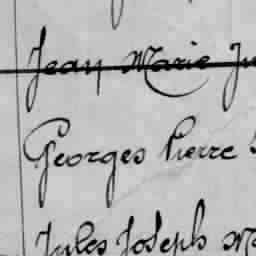 Jean Marie Ju
Georges Pierre
Jules Joseph M